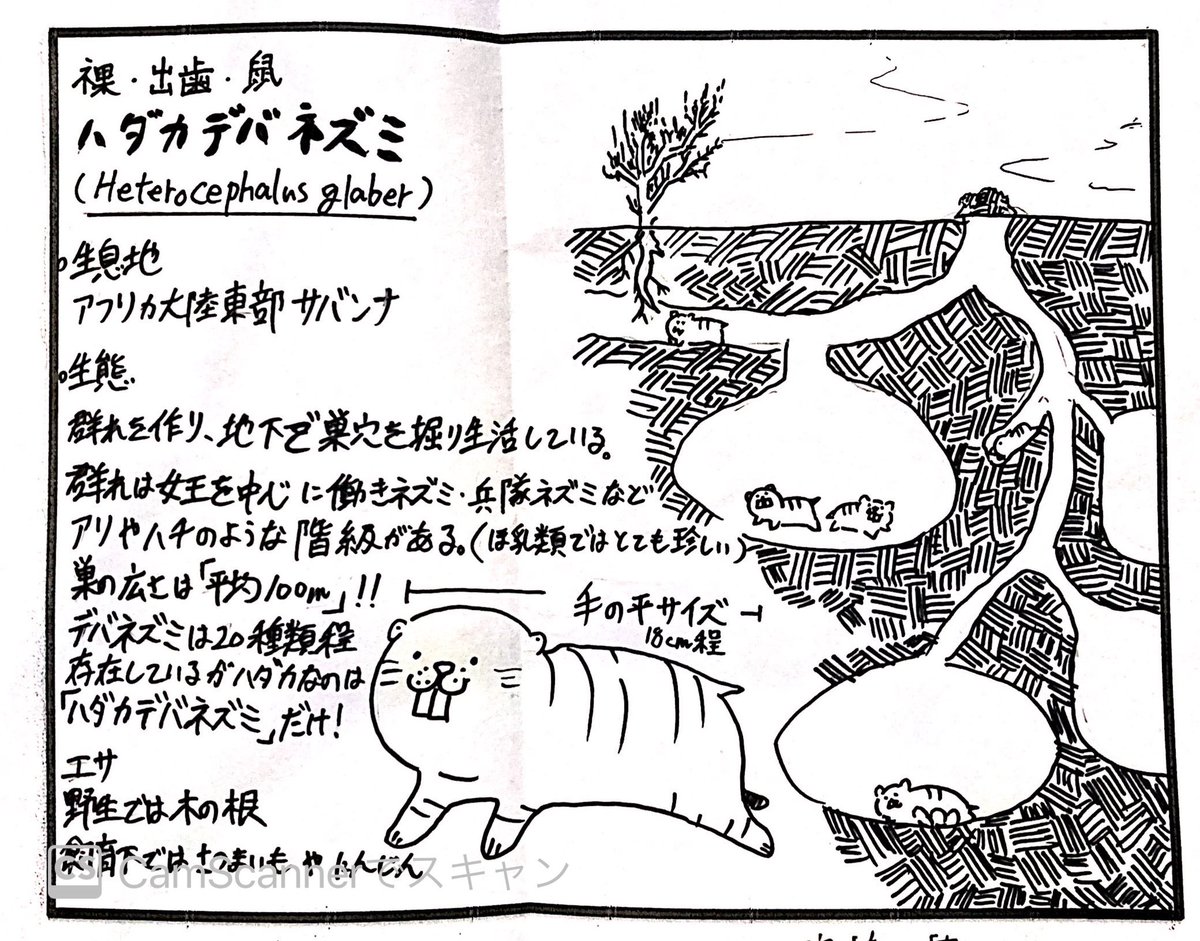 裸・出歯・鼠
ハダカデバネズミ
(Heterocephalus glaber)
○生息地
アフリカ大陸東部 サバンナ
○生態
群れを作り、地下で巣穴を掘り生活している。
群れは女王を中心に働きネズミ・兵隊ネズミなど
アリやハチのような階級がある。(ほ乳類ではとても珍しい)
巣の広さは「平均100m」!!
デバネズミは20種類程
存在しているがハダカなのは
「ハダカデバネズミ」だけ!
エサ
野生では木の根
飼育下ではさつまいもやにんじん
手の平サイズ
18cm程
CS CamScannerでスキャン